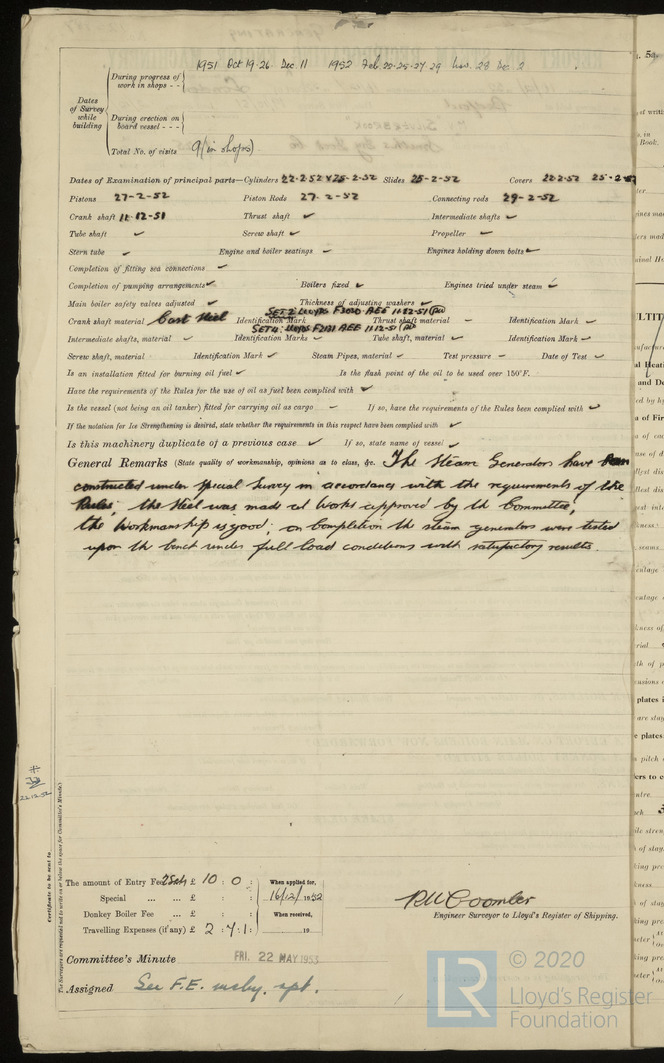 1951 Oct 19-26 Dec 11 1952 Feb 22-25-27-29 Nov. 28 Dec 2
During progress of work in shops - -
Dates of Survey while building
During erection on board vessel - - -
Total No. of visits 9 (in shops)
Dates of Examination of principal parts—Cylinders 22-2-52 & 25-2-52 Slides 25-2-52 Covers 22-2-52 25-2-52
Pistons 27-2-52 Piston Rods 27-2-52 Connecting rods 29-2-52
Crank shaft 11-12-51 Thrust shaft ✓ Intermediate shafts ✓
Tube shaft ✓ Screw shaft ✓ Propeller ✓
Stern tube ✓ Engine and boiler seatings ✓ Engines holding down bolts ✓
Completion of fitting sea connections ✓
Completion of pumping arrangements ✓ Boilers fixed ✓ Engines tried under steam ✓
Main boiler safety valves adjusted ✓ Thickness of adjusting washers ✓
Crank shaft material Cast Steel Identification Mark SET 2: LLOYDS F2020 AEE 11-12-51 Thrust shaft material ✓ Identification Mark ✓
SET 4: LLOYDS F2121 AEE 11-12-51
Intermediate shafts, material ✓ Identification Marks ✓ Tube shaft, material ✓ Identification Mark ✓
Screw shaft, material - Identification Mark ✓ Steam Pipes, material ✓ Test pressure ✓ Date of Test ✓
Is an installation fitted for burning oil fuel ✓ Is the flash point of the oil to be used over 150°F.
Have the requirements of the Rules for the use of oil as fuel been complied with ✓
Is the vessel (not being an oil tanker) fitted for carrying oil as cargo - If so, have the requirements of the Rules been complied with ✓
If the notation for Ice Strengthening is desired, state whether the requirements in this respect have been complied with ✓
Is this machinery duplicate of a previous case ✓ If so, state name of vessel ✓
General Remarks (State quality of workmanship, opinions as to class, &c. The Steam Generators have been
constructed under Special Survey in accordance with the requirements of the
Rules, the steel was made at works approved by the Committee,
the Workmanship is good; on completion the steam generators were tested
upon the bench under full load conditions with satisfactory results.
22.12.52
Certificate to be sent to
(The Surveyors are requested not to write on or below the space for Committee's Minute.)
The amount of Entry Fee £ 10 : 0 : When applied for,
Special ... ... £ : : 16/12/1952
Donkey Boiler Fee ... £ : : When received,
Travelling Expenses (if any) £ 2 : 7 : 1 : 19
R W Coomber
Engineer Surveyor to Lloyd's Register of Shipping.
Committee's Minute FRI. 22 MAY 1953
Assigned See F.E. mchy. rpt.
© 2020
LR
Lloyd's Register
Foundation